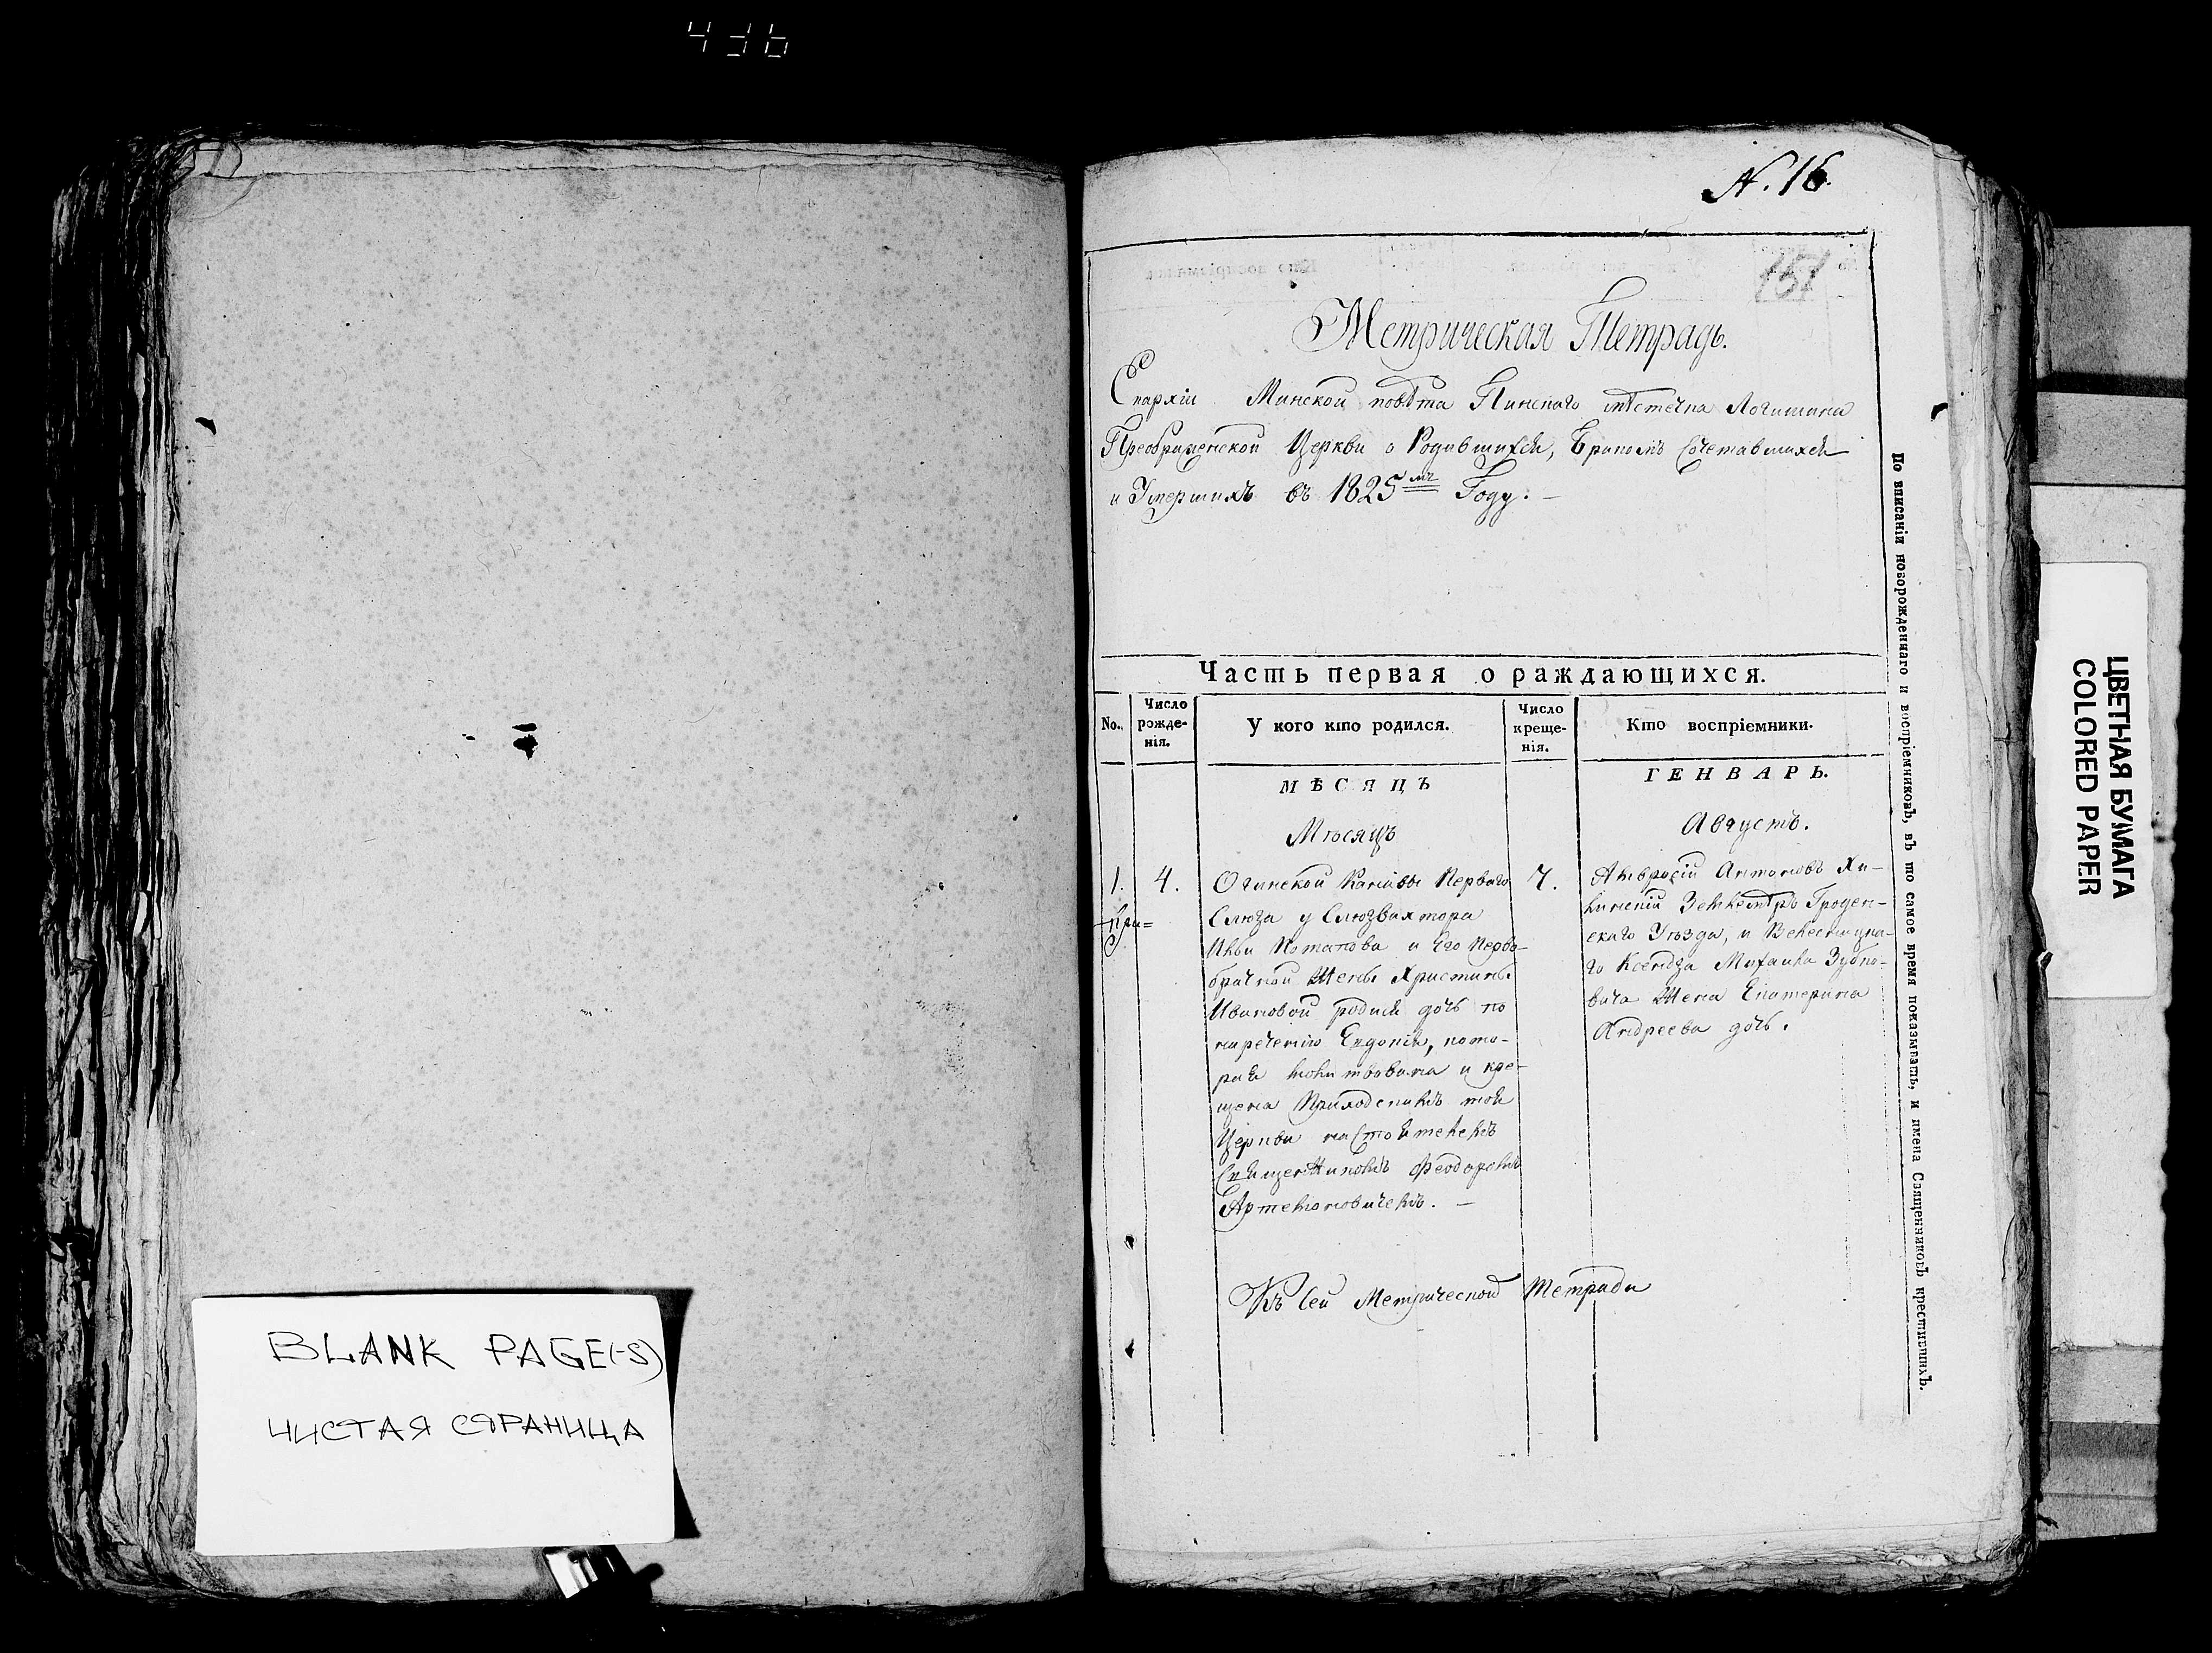 436
BLANK PAGE(-S)
ЧИСТАЯ СТРАНИЦА
N. 16.
151
Метрическая Тетрадь.
Епархіи Минской повѣта Пинскаго мѣстечка Логишина
Преображенской Церкви о Родившихся, Бракомъ Сочетавшихся
и Умершихъ въ 1825мъ Году. —
Часть первая о раждающихся.
No. Число рожденія. У кого кто родился. Число крещенія. Кто воспріемники.
МѢСЯЦЪ ГЕНВАРЬ.
Мѣсяцъ Августъ.
1. 4. Огинской Канавы Перваго
Слюза у Слюзвахтора
Ильи Потапова и Его Перво-
брачной Жены Христины
Ивановой родися дочь по
нареченію Евдокія, кото-
рая молитвована и кре-
щена Приходскимъ той
Церкви настоятелемъ
Священникомъ Феодоромъ
Артемовичемъ. —
7. Амвросій Антоновъ
Землемѣръ Гроден-
скаго Уѣзда, и
го Ксендза Михаила
вича Жена Екатерина
Андреева дочь.
Къ Сей Метрической Тетради
По вписаніи новорожденнаго и воспріемниковъ, въ то самое время показывать, и имена Священниковъ крестившихъ.
ЦВЕТНАЯ БУМАГА
COLORED PAPER